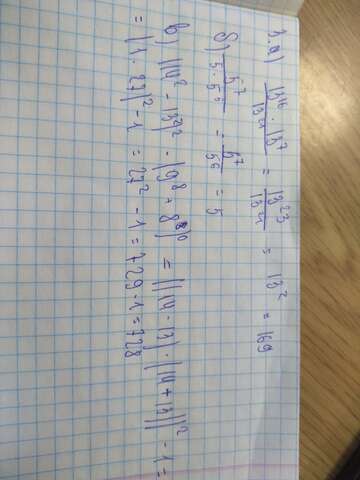 3. a) 13¹⁶ · 13⁷ / 13²¹ = 13²³ / 13²¹ = 13² = 169
б) 5⁷ / 5 · 5⁵ = 5⁷ / 5⁶ = 5
в) (14² - 13²)² - (9⁸ + 8⁹)⁰ = ((14 - 13) · (14 + 13))² - 1 =
= (1 · 27)² - 1 = 27² - 1 = 729 - 1 = 728